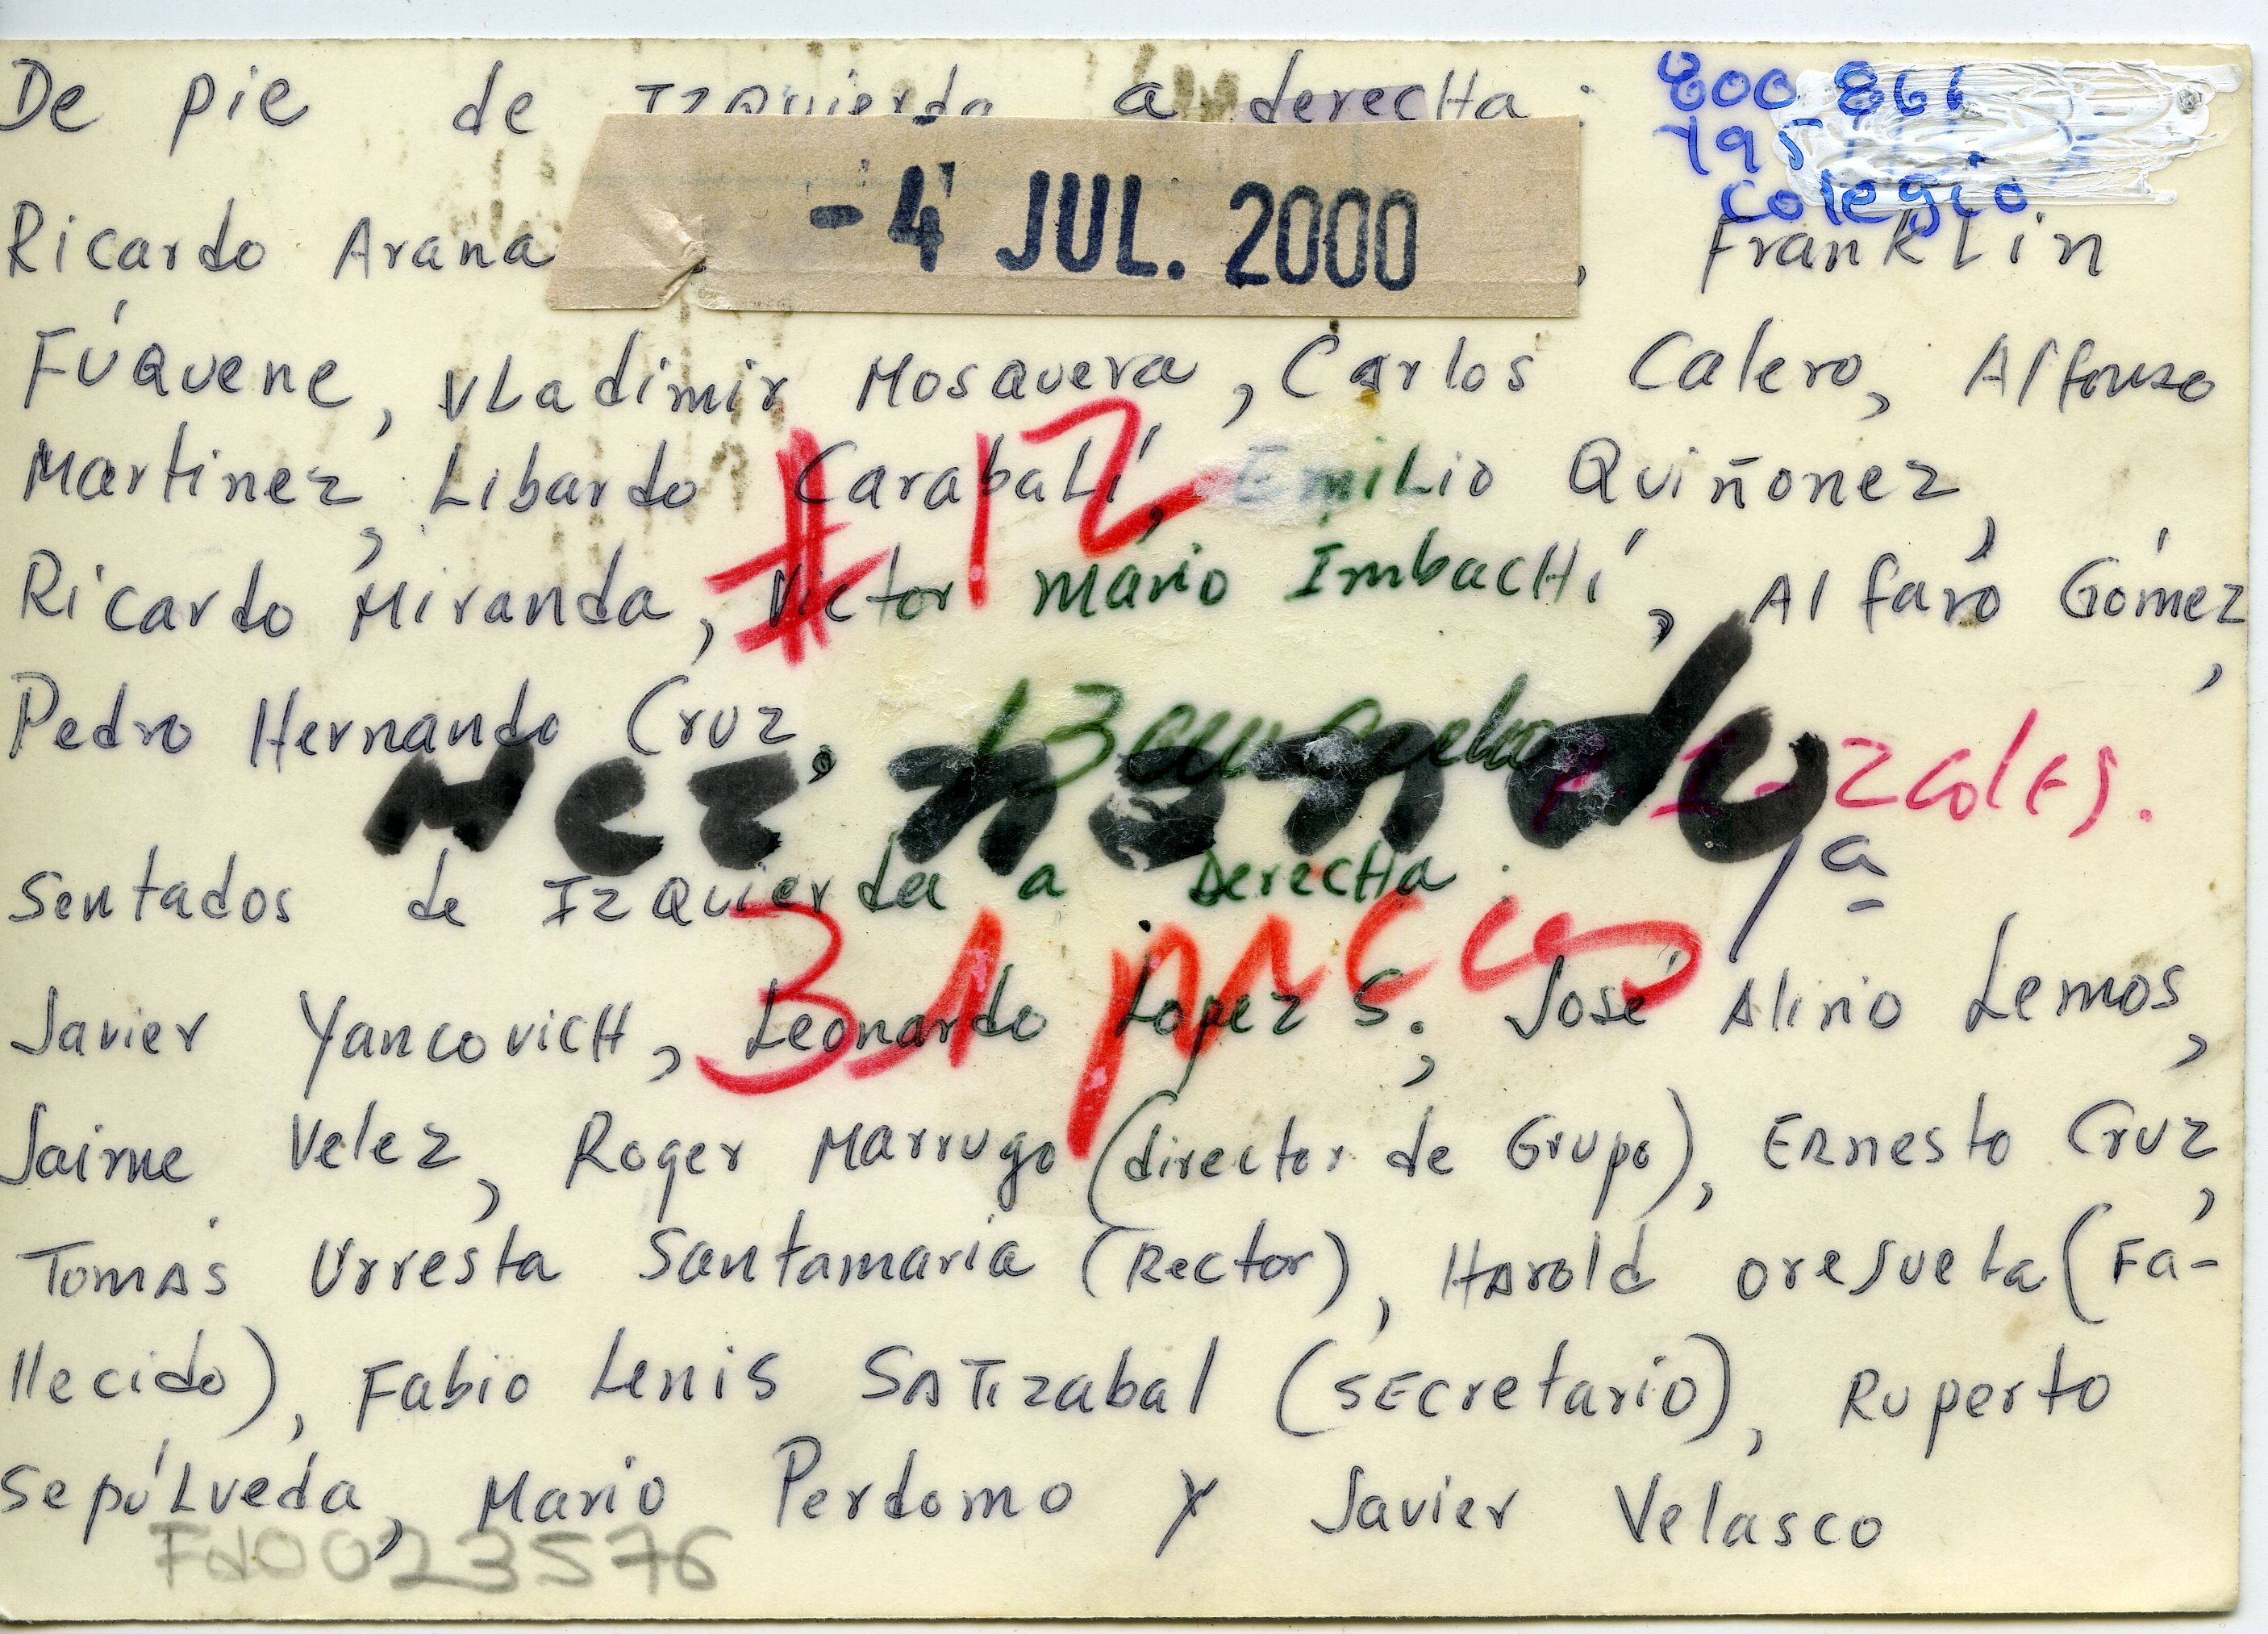 De pie de Izquierda a derecHa :
800 861
795
colegio
- 4 JUL. 2000
Ricardo Arana , FrankLin
FúQuene, VLadimir MosQuera, Carlos Calero, Alfonso
Martinez, Libardo CarabaLí, EmiLio Quiñonez,
# 12
Ricardo Miranda, Victor Mario ImbacHí, Alfaro Gómez,
Pedro Hernando Cruz.
Hernando
Sentados de IzQuierda a DerecHa : 1ª
Javier YancovicH, Leonardo Lopez S., José Alirio Lemos,
Jaime Velez, Roger Marrugo (director de Grupo), ERnesto Cruz,
Tomás Urresta Santamaria (Rector), Harold oreJuela (Fa-
llecido), Fabio Lenis SATizabal (SECretario), Ruperto
SepúLveda, Mario Perdomo y Javier Velasco
Fd0023576